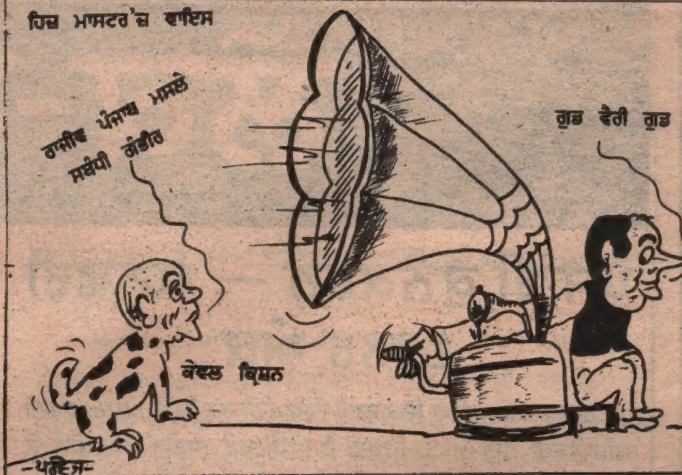 ਹਿਜ਼ ਮਾਸਟਰ'ਜ਼ ਵਾਇਸ
ਰਾਜੀਵ ਪੰਜਾਬ ਮਸਲੇ
ਸਬੰਧੀ ਗੰਭੀਰ
ਗੁਡ ਵੈਰੀ ਗੁਡ
ਕੇਵਲ ਕ੍ਰਿਸ਼ਨ
-ਪਰਵੇਜ਼-